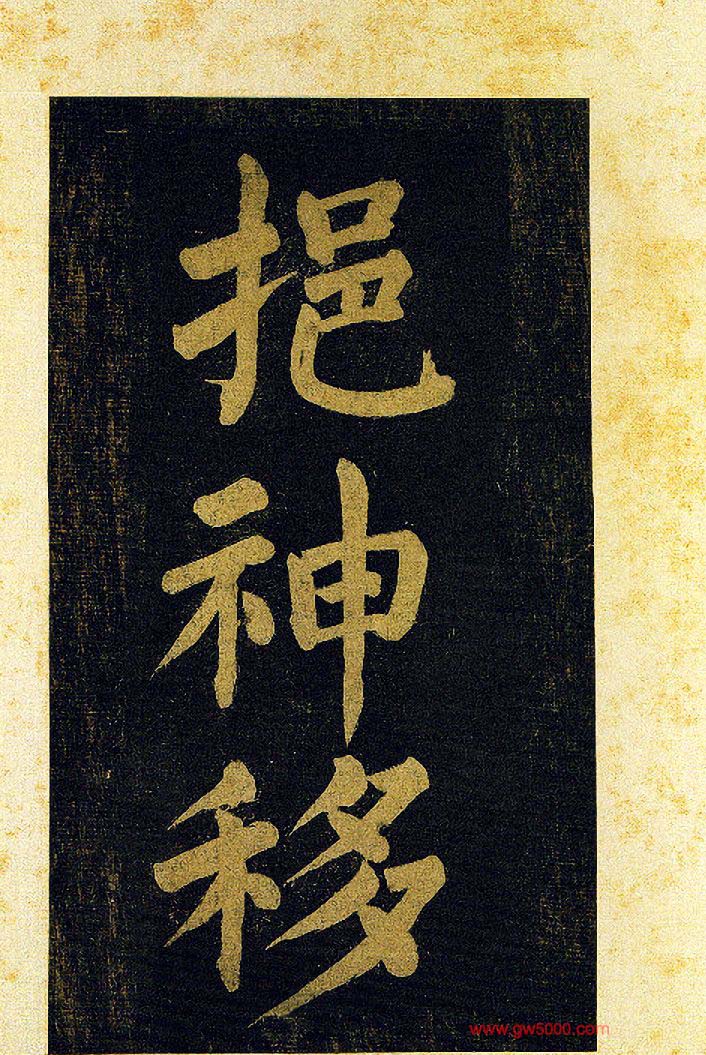 挹神移
www.gw5000.com